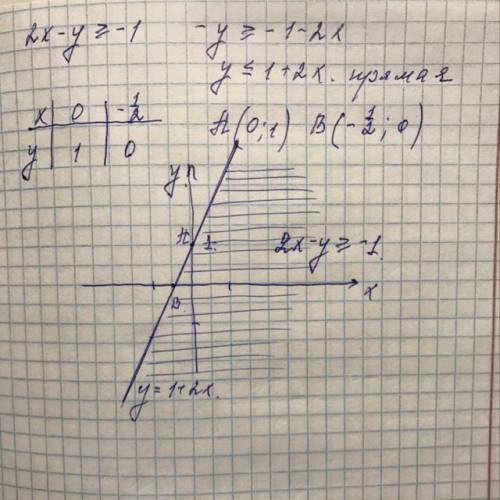 2x-y≥-1   -y≥-1-2x
y≤1+2x. прямая
x | 0 | -1/2
y | 1 | 0
A(0;1)  B(-1/2;0)
y
A 1
2x-y≥-1.
B x
y=1+2x.